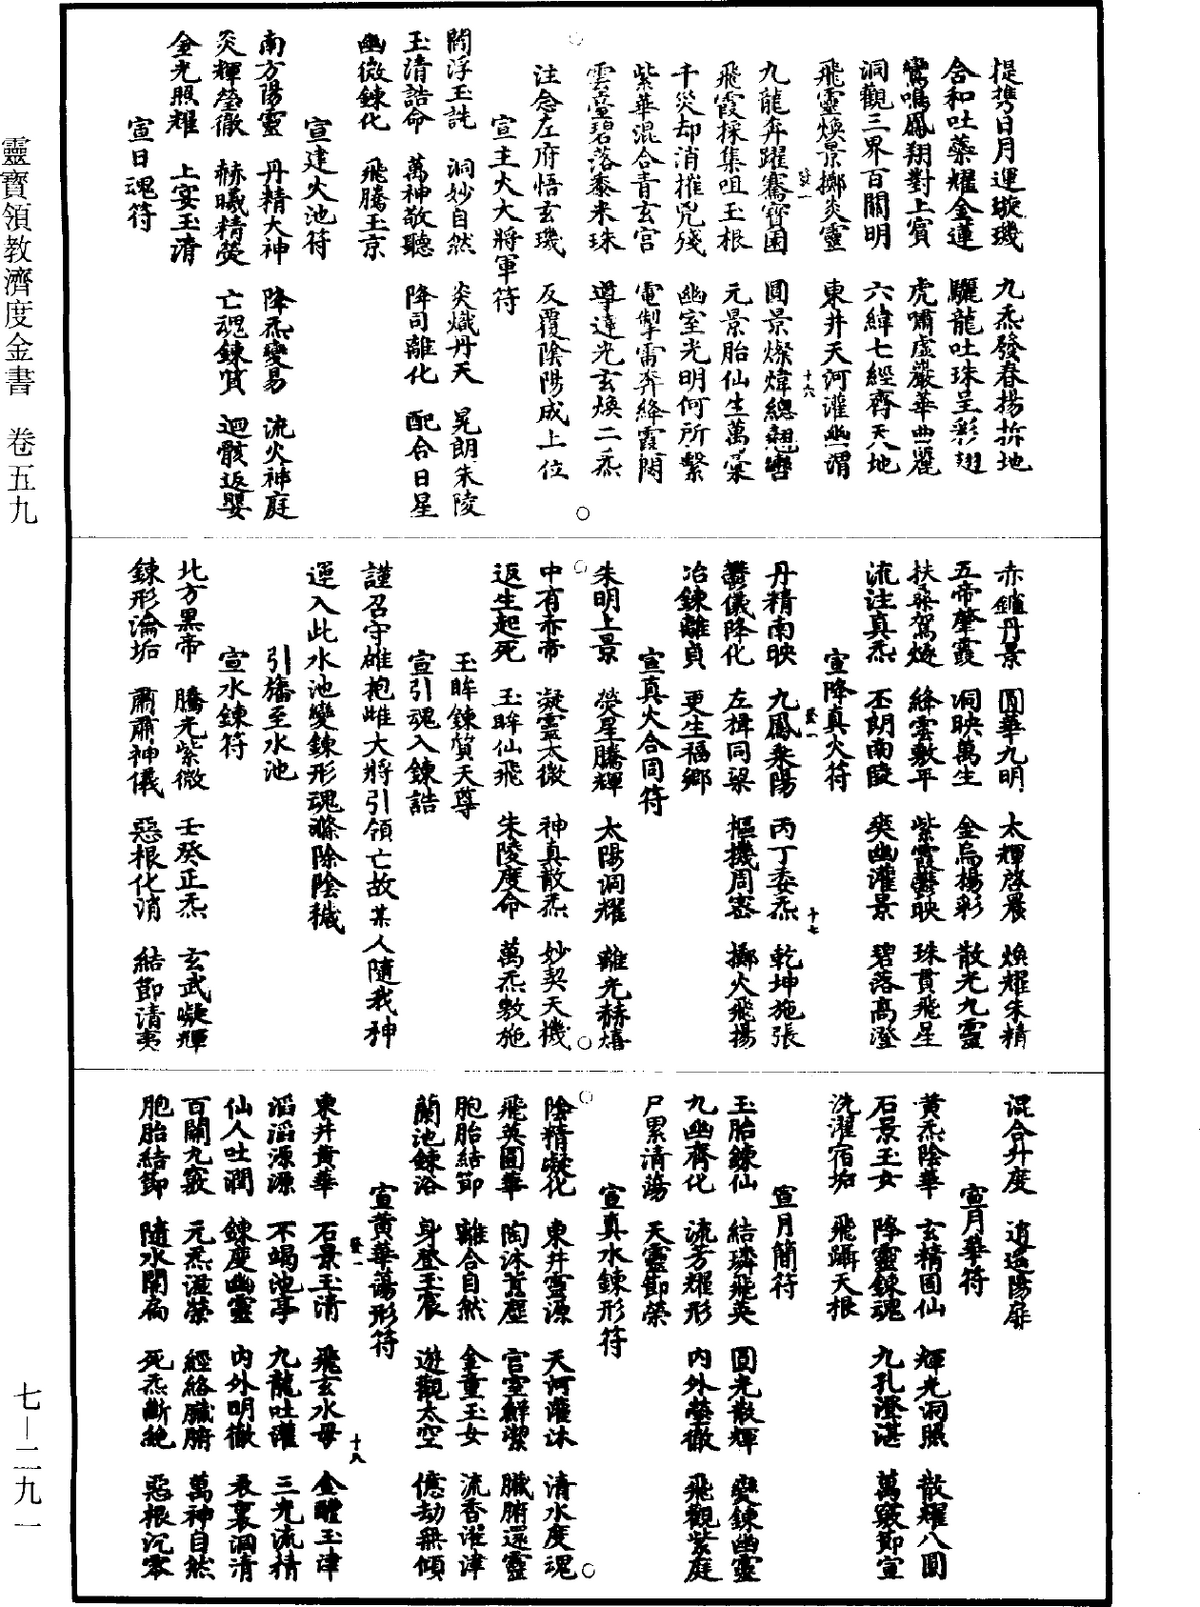 提携日月運璇璣 九炁發春揚拆地
含和吐藥耀金蓮 驪龍吐珠呈彩翅
鸞鳴鳳翔對上賓 虎嘯虛巖華曲麗
洞觀三界百關明 六緯七經齊天地
飛靈煥景擲炎靈 東井天河灌幽謂
九龍奔躍騫寶囷 圓景燦煒總翹巒
飛霞採集咀玉根 元景胎仙生萬稟
千災却消摧兇殘 幽室光明何所繫
紫華混合青玄宮 電掣雷奔絳霞閟
雲臺碧落黍米珠 導達光玄煥二炁
注念左府悟玄璣 反覆陰陽成上位
宣主火大將軍符
閻浮玉詵 洞妙自然 炎熾丹天 晃朗朱陵
玉清誥命 萬神敬聽 降司離化 配合日星
幽微鍊化 飛騰玉京
宣建火池符
南方陽靈 丹精大神 降炁變易 流火神庭
炎輝瑩徹 赫曦精熒 亡魂鍊質 迴骸返嬰
金光照耀 上宴玉清
宣日魂符
赤鑪丹景 圓華九明 太輝啓晨 煥耀朱精
五帝肇霞 洞映萬生 金烏揚彩 散光九靈
扶桑駕燧 絳雲敷平 紫霞鬱映 珠貫飛星
流注真炁 丕朗南陵 爽幽灌景 碧落高澄
宣降真火符
丹精南映 九鳳乘陽 丙丁委炁 乾坤施張
鬱儀降化 左楫同梁 樞機周密 擲火飛揚
冶鍊離貞 更生福鄉
宣真火合同符
朱明上景 熒星騰輝 太陽洞耀 離光赫熺
中有赤帝 凝靈太微 神真散炁 妙契天機
返生起死 玉眸仙飛 朱陵度命 萬炁敷施
玉眸鍊質天尊
宣引魂入鍊誥
謹召守雄抱雌大將引領亡故某人隨我神
運入此水池變鍊形魂滌除陰穢
引旛至水池
宣水鍊符
北方黑帝 騰光紫微 壬癸正炁 玄武凝輝
鍊形淪垢 肅肅神儀 惡根化消 結節清夷
混合升度 逍遥陽扉
宣月華符
黃炁陰華 玄精固仙 輝光洞照 散耀八圓
石景玉女 降靈鍊魂 九孔澄湛 萬竅節宣
洗濯宿垢 飛躡天根
宣月簡符
玉胎鍊仙 結璘飛英 圓光散輝 變鍊幽靈
九幽齊化 流芳耀形 內外瑩徹 飛觀紫庭
尸累清蕩 天靈節榮
宣真水鍊形符
陰精凝化 東井靈源 天河灌沐 清水度魂
飛英圓華 陶沐質塵 官室鮮潔 臟腑還靈
胞胎結節 離合自然 金童玉女 流香濯津
蘭池鍊浴 身登玉宸 遊觀太空 億劫無傾
宣黃華蕩形符
東井黃華 石景玉清 飛玄水母 金醴玉津
滔滔源源 不竭池亭 九龍吐灌 三光流精
仙人吐潤 鍊度幽靈 內外明徹 表裏洞清
百關九竅 元炁滋榮 經絡臟腑 萬神自然
胞胎結節 隨水開扃 死炁斷絕 惡根沉零
十六
十七
十八
靈寶領教濟度金書 卷五九
七—二九一